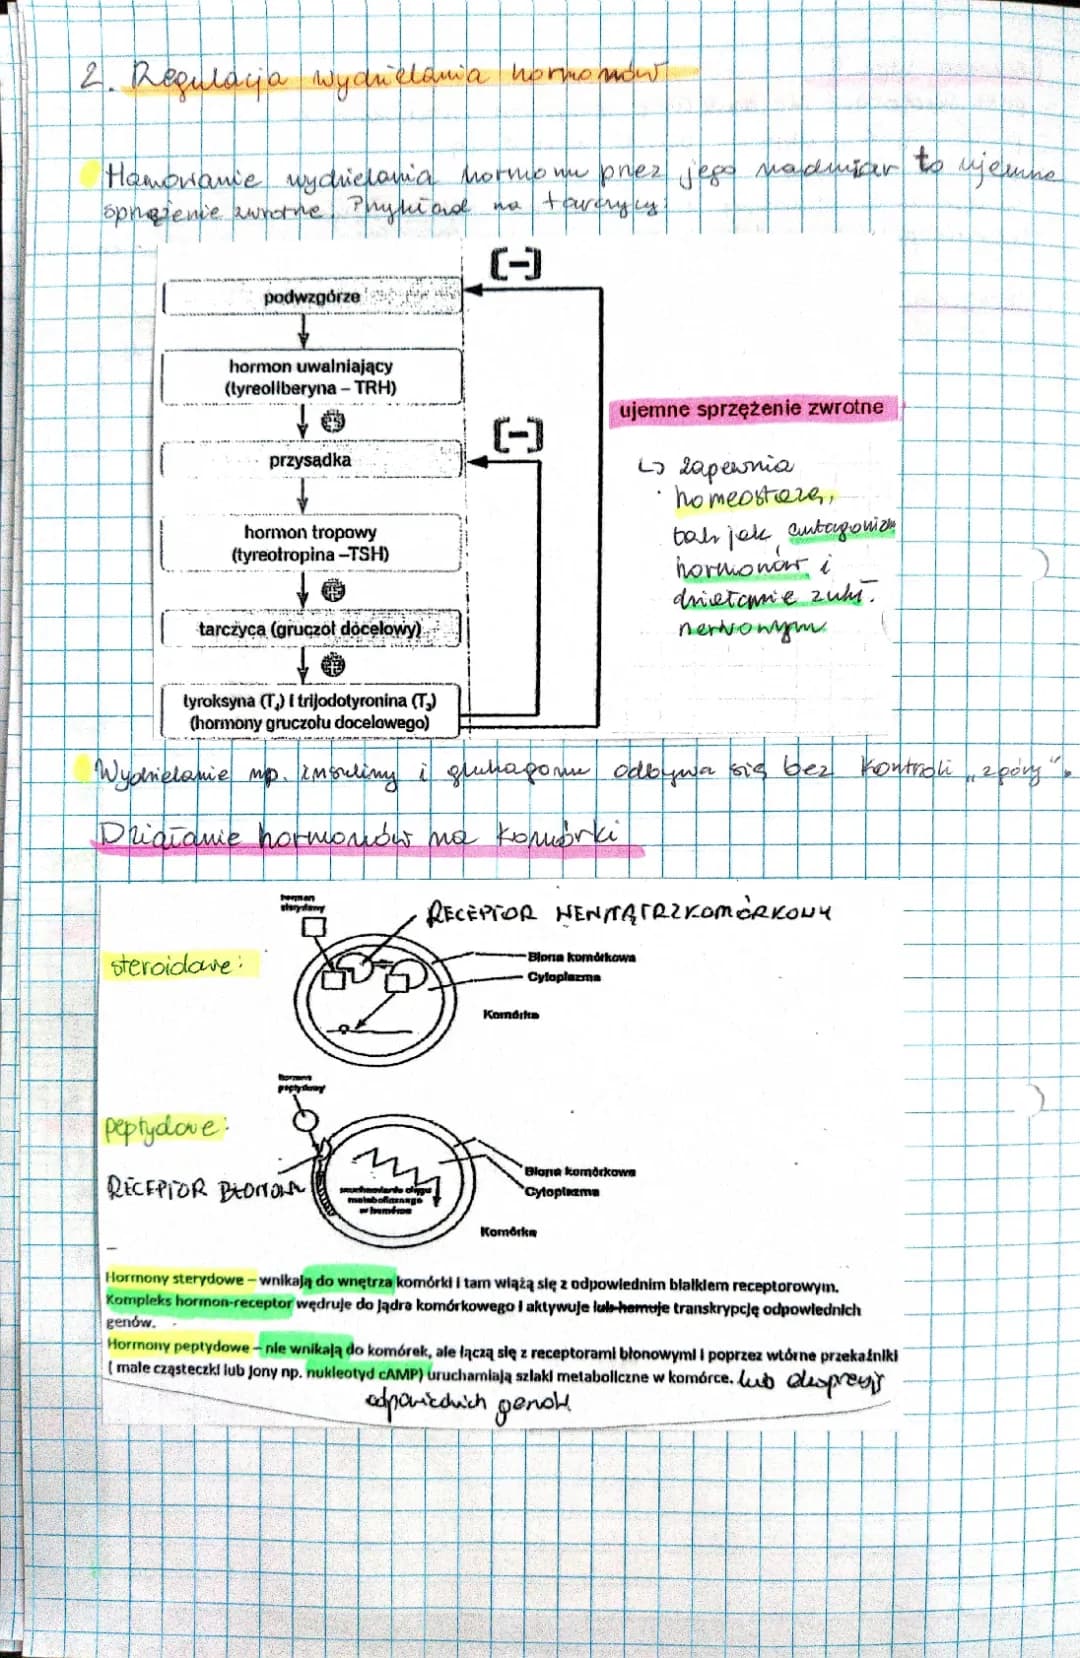 2. Regulacja wydzielania hormonów
Hamowanie wydzielania hormonu przez jego nadmiar to ujemne
sprzężenie zwrotne. Przykład na tarczycy:
[-]
podwzgórze
hormon uwalniający
(tyreoliberyna – TRH)
[-]
ujemne sprzężenie zwrotne
przysadka
↳ zapewnia
homeostazę,
tak jak antagonizm
hormonów i
działanie z ukł.
nerwowym
hormon tropowy
(tyreotropina –TSH)
tarczyca (gruczoł docelowy)
tyroksyna (T₄) i trijodotyronina (T₃)
(hormony gruczołu docelowego)
Wydzielanie np. insuliny i glukagonu odbywa się bez kontroli „z góry".
Działanie hormonów na komórki
hormon
sterydowy
RECEPTOR WEWNĄTRZKOMÓRKOWY
steroidowe:
Błona komórkowa
Cytoplazma
Komórka
Hormon
peptydowy
peptydowe:
RECEPTOR BŁONOWY
Błona komórkowa
Cytoplazma
uruchomienie ciągu
metabolicznego
w komórce
Komórka
Hormony sterydowe – wnikają do wnętrza komórki i tam wiążą się z odpowiednim białkiem receptorowym.
Kompleks hormon-receptor wędruje do jądra komórkowego i aktywuje lub hamuje transkrypcję odpowiednich
genów.
Hormony peptydowe – nie wnikają do komórek, ale łączą się z receptorami błonowymi i poprzez wtórne przekaźniki
( małe cząsteczki lub jony np. nukleotyd cAMP) uruchamiają szlaki metaboliczne w komórce. lub ekspresję
odpowiednich genów